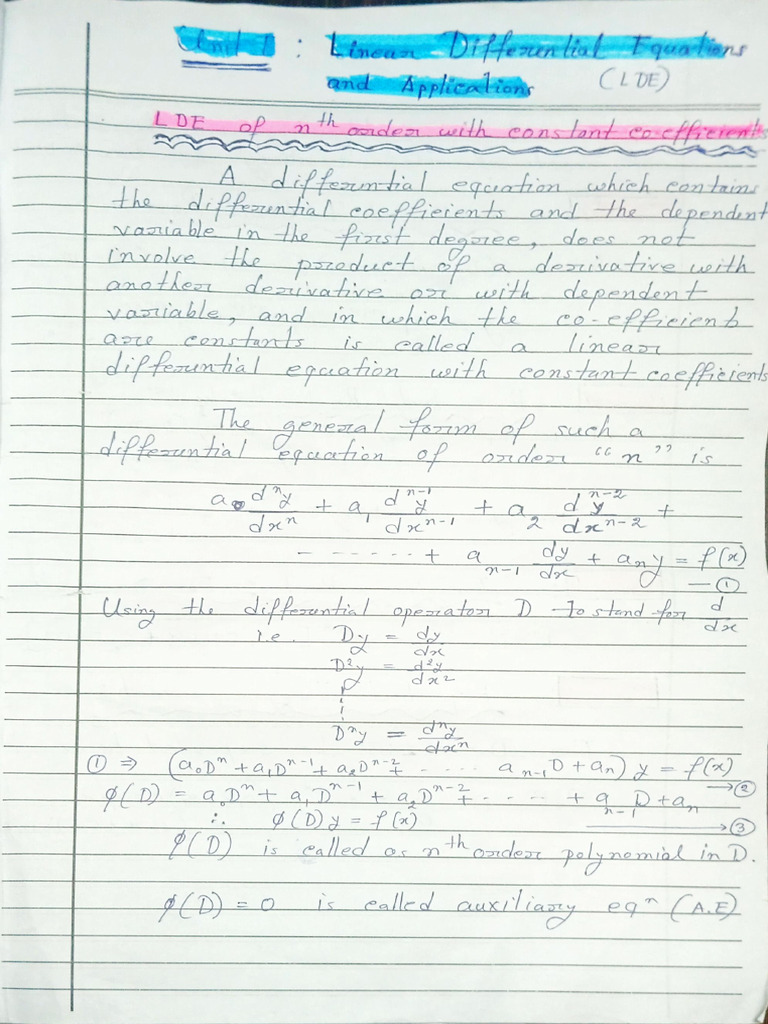 Unit 1 : Linear Differential Equations
and Applications (LDE)
LDE of nth order with constant co-efficients
A differential equation which contains
the differential coefficients and the dependent
variable in the first degree, does not
involve the product of a derivative with
another derivative or with dependent
variable, and in which the co-efficients
are constants is called a linear
differential equation with constant coefficients
The general form of such a
differential equation of order "n" is
a₀ dⁿy/dxⁿ + a₁ dⁿ⁻¹y/dxⁿ⁻¹ + a₂ dⁿ⁻²y/dxⁿ⁻² +
- - - - - - + aₙ₋₁ dy/dx + aₙy = f(x)
— ①
Using the differential operator D to stand for d/dx
i.e. Dy = dy/dx
D²y = d²y/dx²
Dⁿy = dⁿy/dxⁿ
① ⇒ (a₀Dⁿ + a₁Dⁿ⁻¹ + a₂Dⁿ⁻² + - - - - aₙ₋₁D + aₙ) y = f(x)
→ ②
ϕ(D) = a₀Dⁿ + a₁Dⁿ⁻¹ + a₂Dⁿ⁻² + - - - - + aₙ₋₁D + aₙ
∴ ϕ(D)y = f(x) → ③
ϕ(D) is called as nth order polynomial in D.
ϕ(D) = 0 is called auxiliary eqⁿ (A.E)